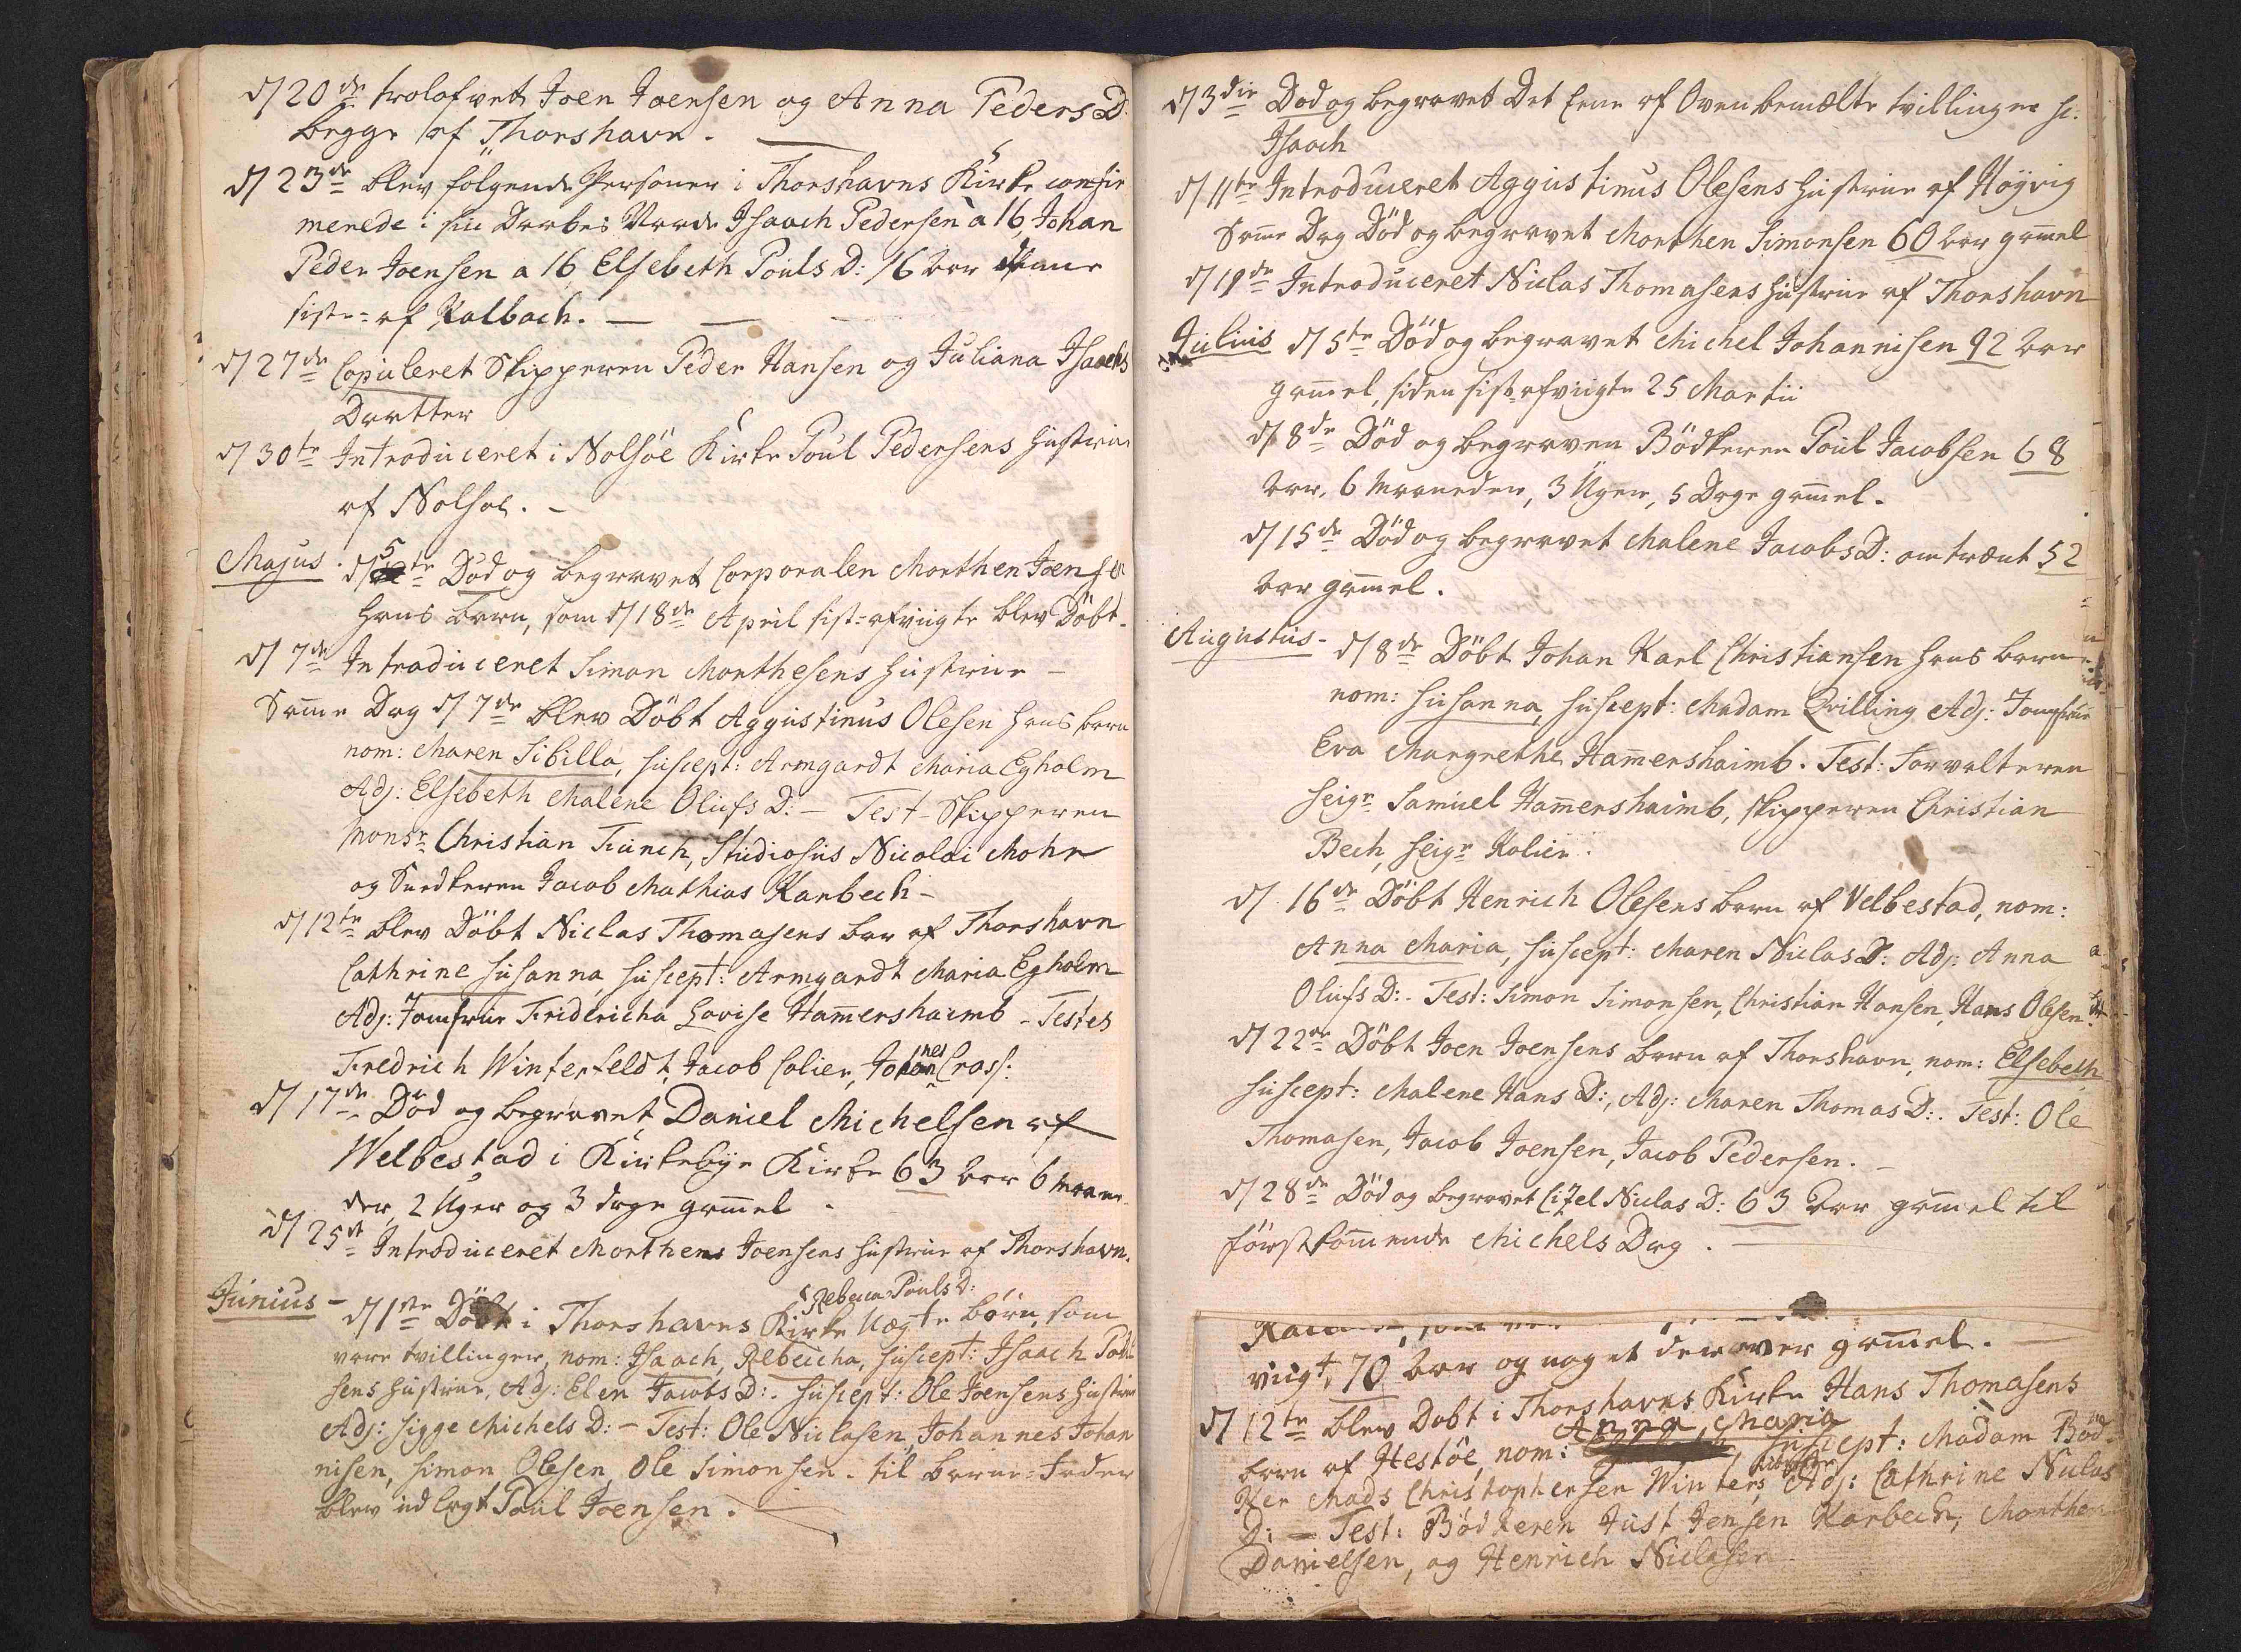 d/ 20de trolofvet Joen Joensen og Anna Peders D.
begge af Thorshavn.
d/ 23de blev følgende Personer i Thorshavns Kirke confir
merede i sin Daabes Naade Isaach Pedersen a 16, Johan
Peder Joensen a 16, Elsebeth Pouls D: 16 aar
siste af Kalbach.
d/ 27de Copuleret Skipperen Peder Hansen og Juliana Isaachs
Daatter
d/ 30te Introduceret i Nolsöe Kirke Poul Pedersens Hustrue
af Nolsöe.
Majus. d/ 5te Död og begravet Corporalen Morthen Joensen
hans barn, som d/ 18de April sist-afvigte blev Döbt.
d/ 7de Introduceret Simon Morthesens Hustrue
Samme Dag d/ 7de blev Döbt Aggustinus Olesen hans barn
nom: Maren Sibilla, suscept: Armgardt Maria Egholm
Adj: Elsebeth Malene Olufs D: - Test - Skipperen
Monsr. Christian Funch, Studiosus Nicolai Mohr
og Snedkeren Jacob Mathias Karbech -
d/ 12te blev Döbt Niclas Thomasens bar af Thorshavn
Cathrine Susanna suscept: Armgardt Maria Egholm
Adj: Jomfrue Fridericha Lovise Hammershaimb - Testes
Fredrich Winterfeldt, Jacob Colier, Johannes Cross:
d/ 17de Död og begravet Daniel Michelsen af
Welbestad i Kirkebye Kirke 63 aar 6 Maane
der, 2 Uger og 3 dage gammel.
d/ 25de Introduceret Morthens Joensens Hustrue af Thorshavn.
Rebecca Pouls D:
Junius - d/ 1ste Döbt i Thorshavns Kirke Uægte börn, som
vare tvillinger, nom: Isaach, Rebeicha, suscept: Isaach Peder
sens Hustrue, Adj: Elen Jacobs D:. suscept: Ole Joensens Hustrue
Adj: Sigge Michels D: - Test: Ole Niclasen, Johannes Johan
nisen, Simon Olesen, Ole Simonsen. til barne-Fader
blev udlagt Poul Joensen.
d/ 3die Död og begravet Det Eene af Ovenbemælte tvillinger
Isaach
d/ 11te Introduceret Aggustinus Olesens Hustrue af Höyvig
Samme Dag Död og begravet Morthen Simonsen 60 aar gammel
d/ 19de Introduceret Niclas Thomasens Hustrue af Thorshavn
Julius d/ 5te Död og begravet Michel Johannisen 92 aar
gammel, siden sist-afvigte 25 Martii
d/ 8de Död og begraven Bödkeren Poul Jacobsen 68
aar, 6 Maaneder, 3 Uger, 5 Dage gammel.
d/ 15de Död og begravet Malene Jacobs D: omtrent 52
aar gammel.
Augustus - d/ 8de Döbt Johan Karl Christiansen hans barn
nom: Susanna, suscept: Madam Qvilling Adj: Jomfrue
Eva Margrethe Hammershaimb. Test: Forvalteren
Seigr. Samuel Hammershaimb, Skipperen Christian
Bech, Seigr. Kolier.
d/ 16de Döbt Henrich Olesens barn af Velbestad, nom:
Anna Maria, suscept: Maren Niclas D: Adj: Anna
Olufs D:. Test: Simon Simonsen, Christian Hansen, Hans Olesen.
d/ 22de Döbt Joen Joensens barn af Thorshavn, nom: Elsebeth
suscept: Malene Hans D:, Adj: Maren Thomas D:. Test: Ole
Thomasen, Jacob Joensen, Jacob Pedersen.
d/ 28de Död og begravet Citzel Niclas D: 63 aar gammel til
förstkommende Michels Dag.
viigt, 70 aar og noget derover gammel.
d/ 12te blev Dobt i Thorshavns Kirke Hans Thomasens
barn af Hestöe, nom: Anna Maria suscept: Madam Böd
ker Mads Christophersen Winters Adj: Cathrine Niclas
D: - Test: Bödkeren Just Jensen Karbech, Morthen
Danielsen, og Henrich Niclasen